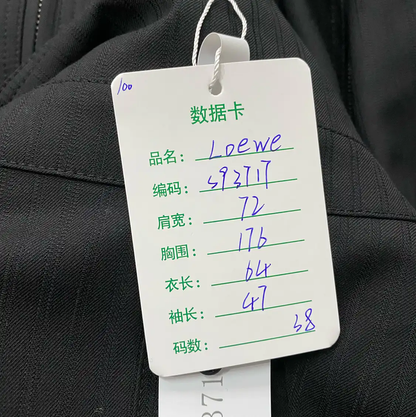 100
数据卡
品名: Loewe
编码: 593717
肩宽: 72
胸围: 176
衣长: 64
袖长: 47
码数: 38
371